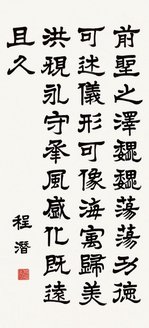 前聖之澤巍巍蕩蕩功德
可述儀形可像海寓歸美
洪規永守承風感化既遠
且久
程潛